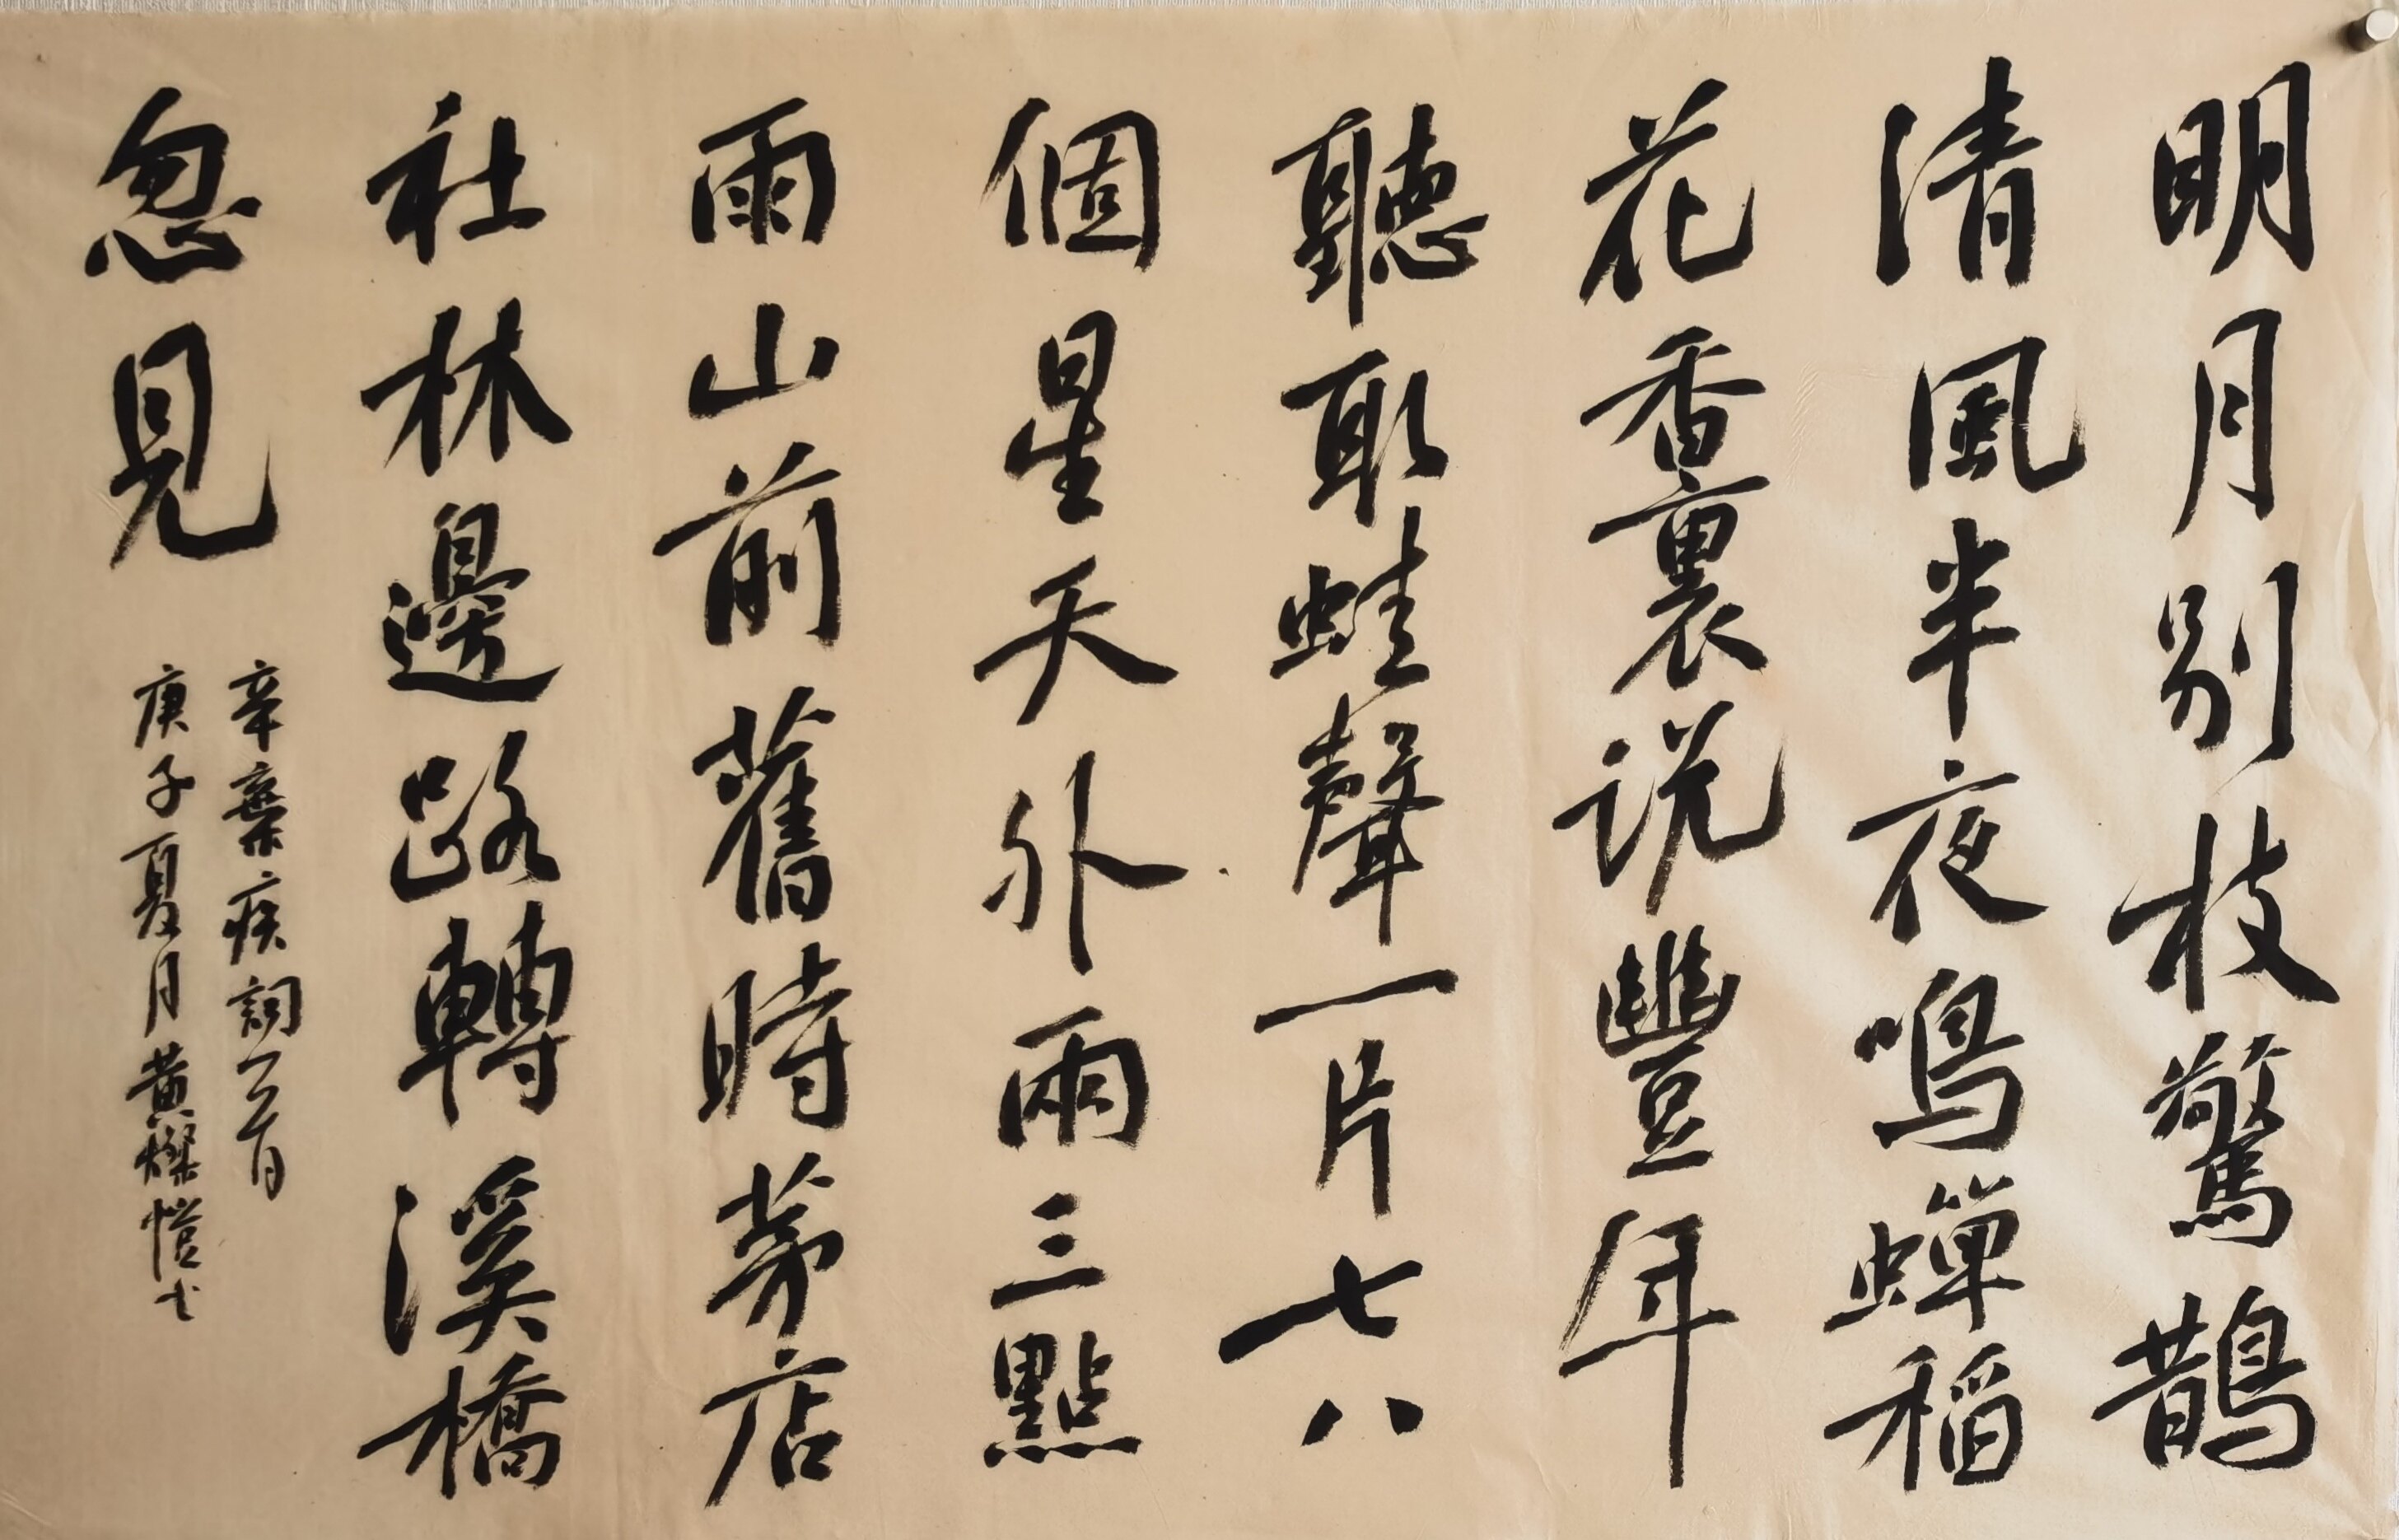 明月别枝驚鵲
清風半夜鳴蟬稻
花香裏说豐年
聽取蛙聲一片七八
個星天外兩三點
雨山前舊時茅店
社林邊路轉溪橋
忽見
辛棄疾詞一首
庚子夏月黄燦愷书